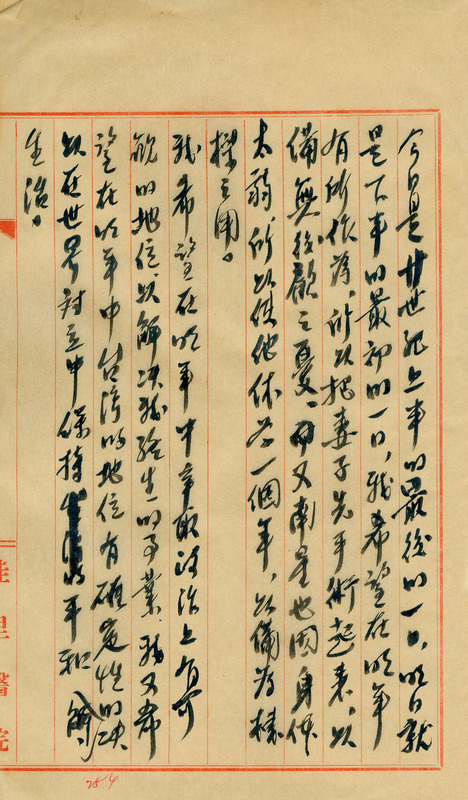 今日是廿世紀上半的最後的一日，明日就
是下半的最初的一日，我希望在明年
有所作為，所以把妻子先手術起來，以
備無後顧之憂，而又南星也因身体
太弱，所以使他休养一個年，以備為棟
樑之用。
我希望在明年中爭取政治上有可
能的地位，以解决我終生的事業，我又希
望在明年中台湾的地位有確定性的决
以在世界对立中保持平和
生治。
佳里醫院